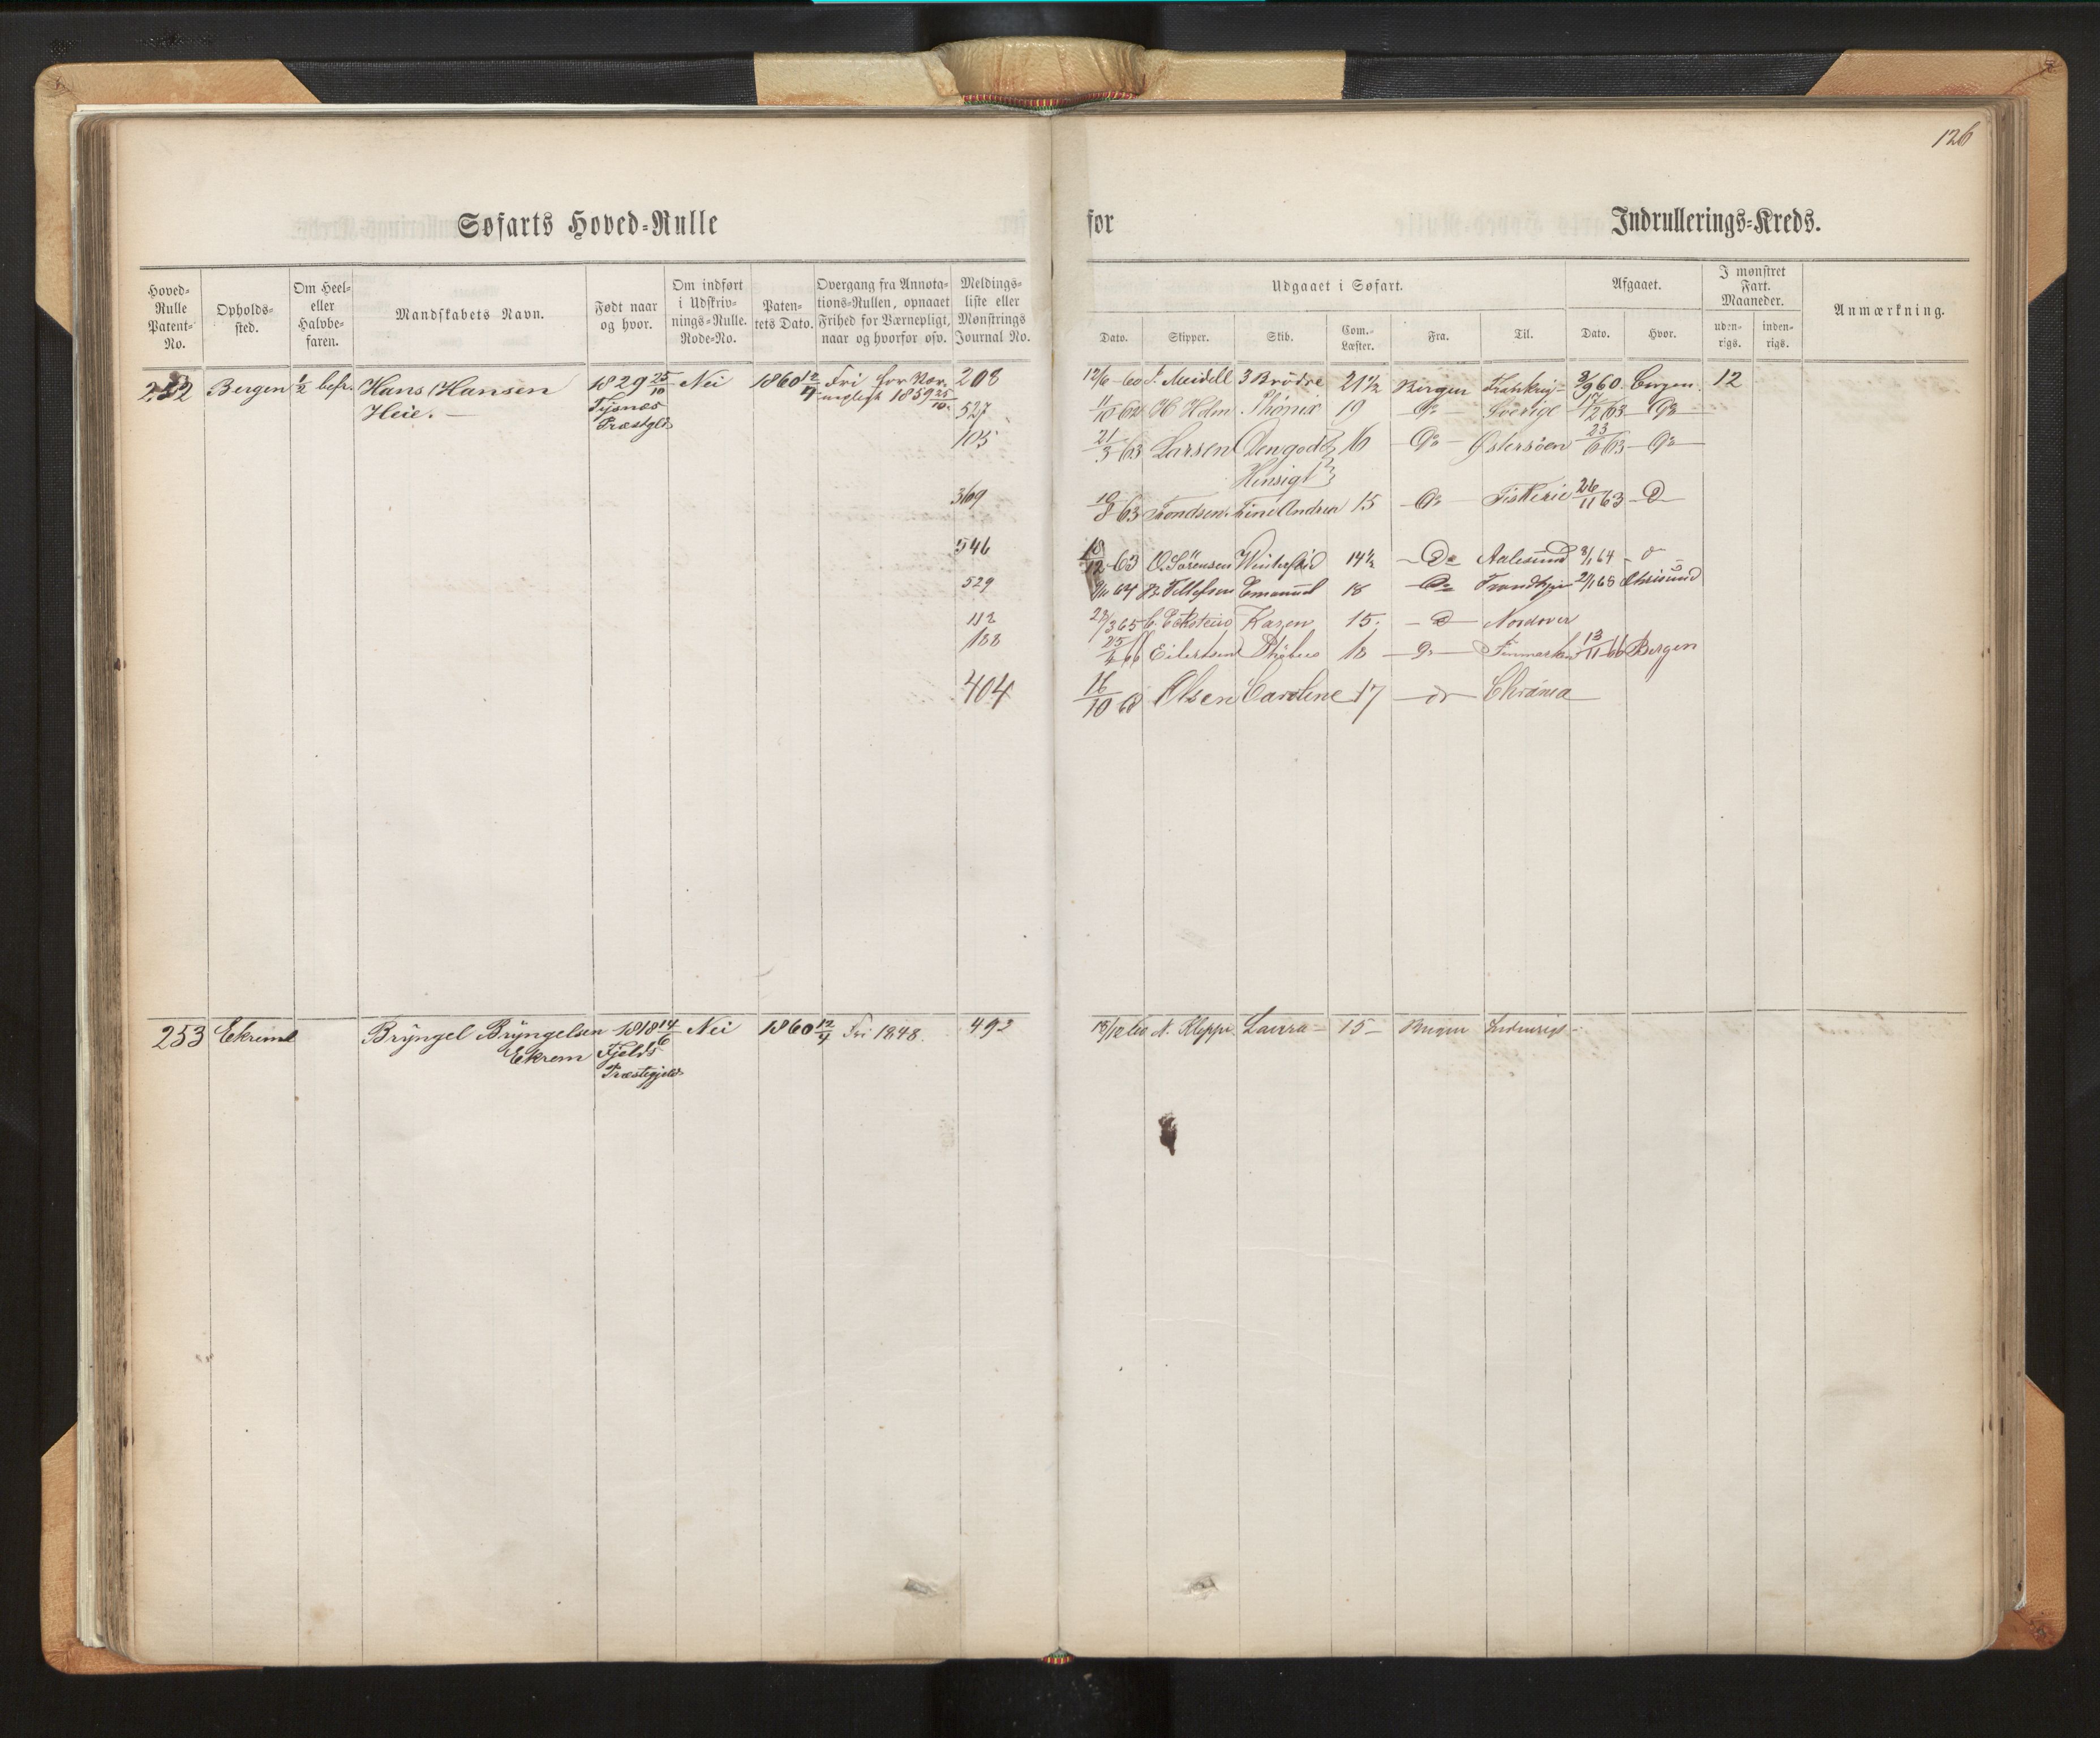 126
Søfarts Hoved-Rulle for Indrullerings-Kreds.
Hoved-Rulle Patent-No.
Opholds-sted.
Om Heel- eller Halvbe-faren.
Mandskabets Navn.
Født naar og hvor.
Om indført i Udskriv-nings-Rulle. Rode-No.
Paten-tets Dato.
Overgang fra Annota-tions-Rullen, opnaaet Frihed for Værnepligt, naar og hvorfor osv.
Meldings-liste eller Mønstrings Journal No.
Udgaaet i Søfart.
Afgaaet.
I mønstret Fart. Maaneder.
Anmærkning.
Dato. Skipper. Skib. Com.-Læster. Fra. Til. Dato. Hvor. uden-rigs. inden-rigs.
252 Bergen ½ befr. Hans Hansen 1829 25/10 Nei 1860 12/4 Fri for Vær- 208 12/6-60 J. Meidell 3 Brødre 21½ Bergen 3/9 60 Bergen 12
Heie. Tysnes nepligt 1859 25/10. 527 11/10 62 H Holm Phønix 19 Do Sverige 17/12 63 Do
Præstgld 105 21/3 63 Larsen Den gode 16 Do Østersøen 23/6 63 Do
Hensigt
369 10/8 63 Trondsen Fine Andrea 15 Do Fiskerie 26/11 63 D
546 18/12 63 O. Sørensen 14½ Do Aalesund 8/1 64 d
529 64 Emanuel 18 Do Trondhjem 2/1 65 Chrisund
112 28/3 65 Karen 15. D Nordover
188 25/4 66 Eilertsen Phøbus 18 Do Finmarken 13/11 66 Bergen
404 16/10 68 Olsen Caroline 17 do Chrania
253 Ekrem Bryngel Bryngelsen 1818 14/6 Nei 1860 12/4 Fri 1848. 492 18/12 60 N. Kleppe Laurra 15 Bergen Indenrigs
Ekrem Fjelds
Præstegjeld